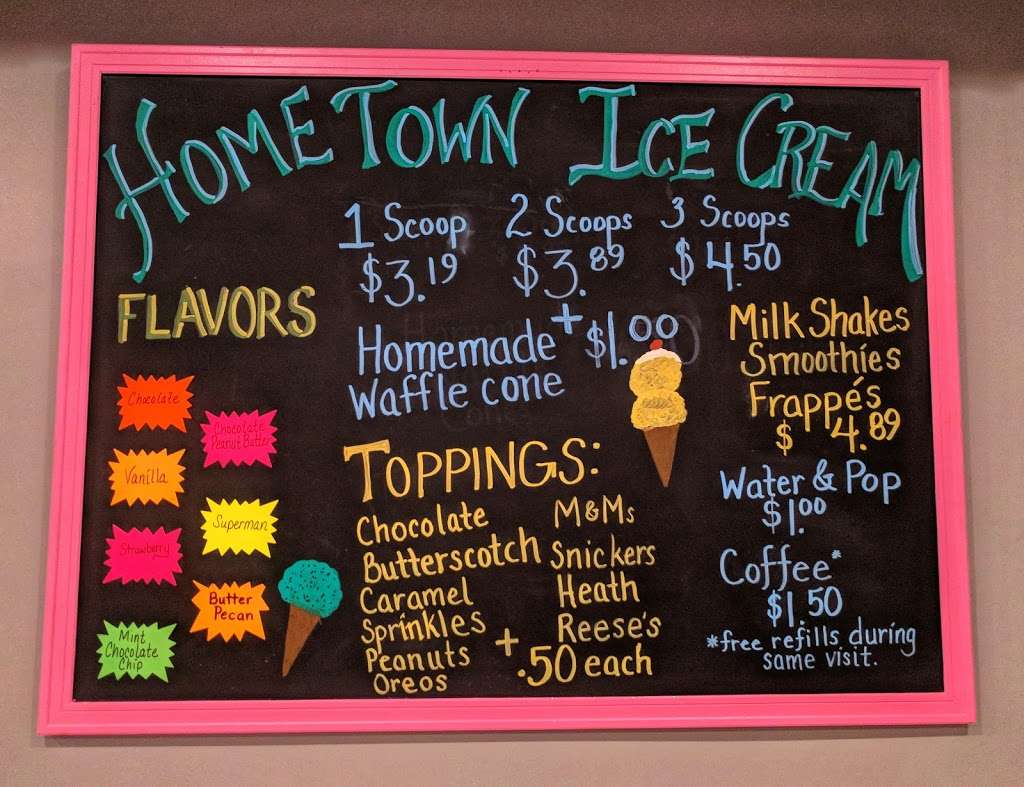 HOMETOWN ICE CREAM
1 Scoop 2 Scoops 3 Scoops
$3.19 $3.89 $4.50
Homemade + $1.00
Waffle cone
FLAVORS
Chocolate
Chocolate
Peanut Butter
Vanilla
Superman
Strawberry
Butter
Pecan
Mint
Chocolate
Chip
TOPPINGS:
Chocolate
Butterscotch
Caramel
Sprinkles
Peanuts
Oreos
M&Ms
Snickers
Heath
Reese's
+ .50 each
Milk Shakes
Smoothies
Frappés
$ 4.89
Water & Pop
$1.00
Coffee*
$1.50
*free refills during
same visit.